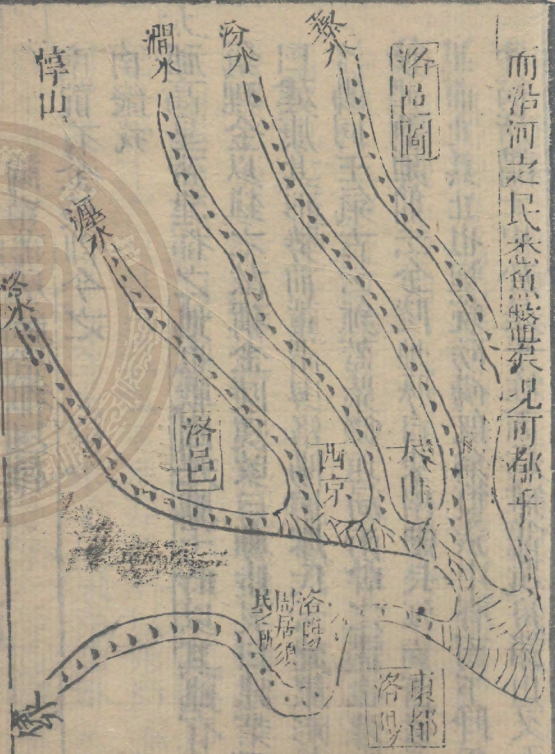 而沿河之民悉魚鱉矣况可都乎
洛邑圖
汾水
澗水
惇山
瀍水
洛水
洛邑
西京
太山
洛陽
周居須
民之所
東都
洛陽